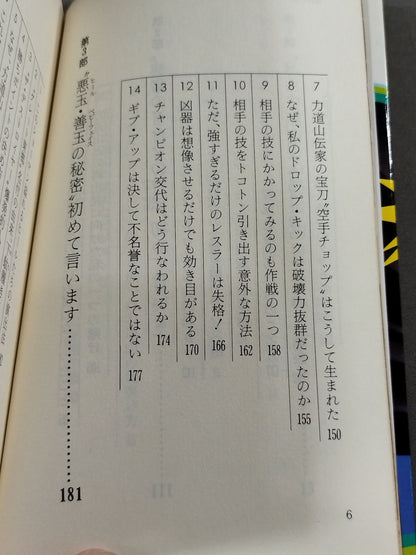 7 力道山伝家の宝刀〝空手チョップ〟はこうして生まれた 150
8 なぜ、私のドロップ・キックは破壊力抜群だったのか 155
9 相手の技にかかってみるのも作戦の一つ 158
10 相手の技をトコトン引き出す意外な方法 162
11 ただ、強すぎるだけのレスラーは失格! 166
12 凶器は想像させるだけでも効き目がある 170
13 チャンピオン交代はどう行なわれるか 174
14 ギブ・アップは決して不名誉なことではない 177
第3部 〝悪玉・善玉の秘密〟初めて言います 181
ヒール ベビーフェイス
6